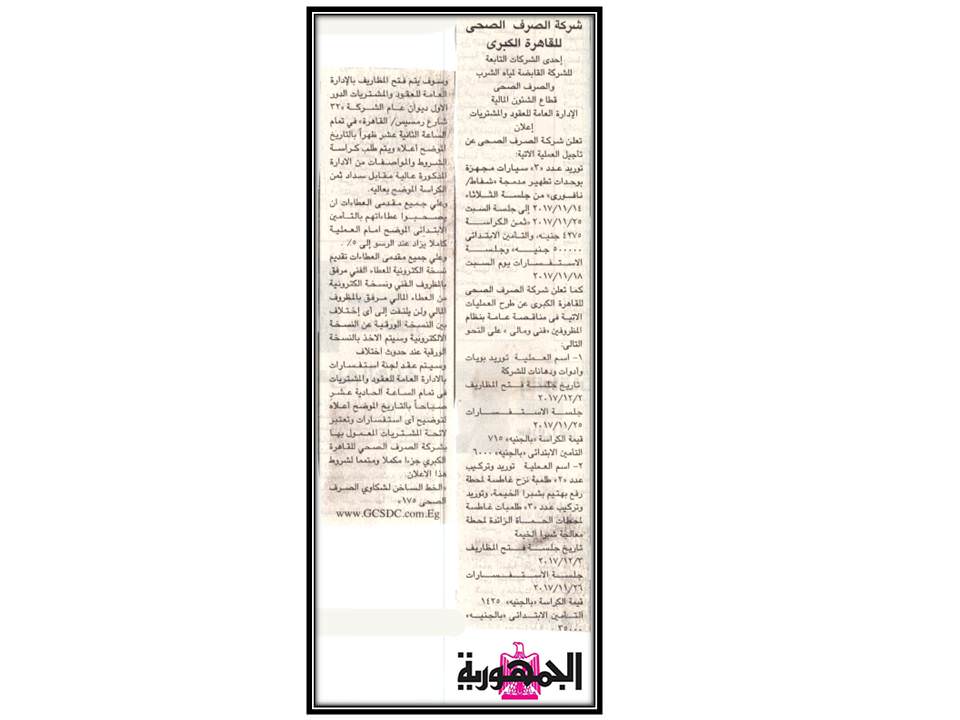 شركة الصرف الصحى
للقاهرة الكبرى
إحدى الشركات التابعة
للشركة القابضة لمياه الشرب
والصرف الصحى
قطاع الشئون المالية
الإدارة العامة للعقود والمشتريات
إعلان
تعلن شركة الصرف الصحى عن
تأجيل العملية الاتية:
توريد عدد «٣» سيارات مجهزة
بوحدات تطهير مدمجة «شفاط/
نافورى» من جلسة الثلاثاء
٢٠١٧/١١/١٤ إلى جلسة السبت
٢٠١٧/١١/٢٥ «ثمن الكراسة
٤٢٧٥ جنيه، والتأمين الابتدائى
٥٠٠٠٠٠ جنيه» وجلسة
الاستفسارات يوم السبت
٢٠١٧/١١/١٨
كما تعلن شركة الصرف الصحى
للقاهرة الكبرى عن طرح العمليات
الاتية فى مناقصة عامة بنظام
المظروفين «فنى ومالى» على النحو
التالى:
١- اسم العملية توريد بويات
وأدوات ودهانات للشركة
تاريخ جلسة فتح المظاريف
٢٠١٧/١٢/٢
جلسة الاستفسارات
٢٠١٧/١١/٢٥
قيمة الكراسة «بالجنيه» ٧١٥
التامين الابتدائى «بالجنيه» ٦٠٠٠
٢- اسم العملية توريد وتركيب
عدد «٢» طلمبة نزح غاطسة لمحطة
رفع بهتيم بشبرا الخيمة، وتوريد
وتركيب عدد «٣» طلمبات غاطسة
لمحطات الحمأة الزائدة لمحطة
معالجة شبرا الخيمة
تاريخ جلسة فتح المظاريف
٢٠١٧/١٢/٣
جلسة الاستفسارات
٢٠١٧/١١/٢٦
قيمة الكراسة «بالجنيه» ١٤٢٥
التامين الابتدائى «بالجنيه»
٣٥٠٠٠
وسوف يتم فتح المظاريف بالإدارة
العامة للعقود والمشتريات الدور
الاول ديوان عام الشركة «٣٢
شارع رمسيس/ القاهرة» في تمام
الساعة الثانية عشر ظهراً بالتاريخ
الموضح اعلاه ويتم طلب كراسة
الشروط والمواصفات من الادارة
المذكورة عالية مقابل سداد ثمن
الكراسة الموضح بعاليه.
وعلي جميع مقدمى العطاءات ان
يصحبوا عطاءاتهم بالتامين
الابتدائى الموضح امام العملية
كاملا يزاد عند الرسو إلى ٥٪.
وعلي جميع مقدمى العطاءات تقديم
نسخة الكترونية للعطاء الفني مرفق
بالمظروف الفني ونسخة الكترونية
من العطاء المالي مرفق بالمظروف
المالي ولن يلتفت إلى أى إختلاف
بين النسخة الورقية عن النسخة
الالكترونية وسيتم الاخذ بالنسخة
الورقية عند حدوث اختلاف
وسيتم عقد لجنة استفسارات
بالادارة العامة للعقود والمشتريات
فى تمام الساعة الحادية عشر
صباحاً بالتاريخ الموضح اعلاه
لتوضيح أى استفسارات وتعتبر
لائحة المشتريات المعمول بها
بشركة الصرف الصحي للقاهرة
الكبري جزءا مكملا ومتمما لشروط
هذا الاعلان.
«الخط الساخن لشكاوي الصرف
الصحى ١٧٥»
www.GCSDC.com.Eg
الجمهورية